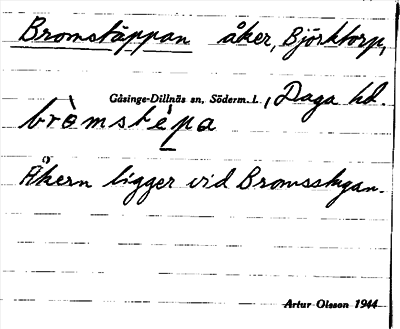 Bromstäppan åker, Björktorp,
Gåsinge-Dillnäs sn, Söderm. l., Daga hd.
bròmstépa
Åkern ligger vid Bromsstugan.
Artur Olsson 1944